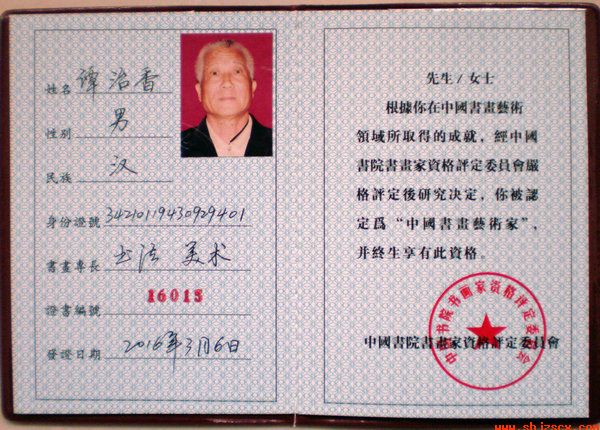 姓名 谭治香
性别 男
民族 汉
身份證號 34210119430929401
書畫專長 书法 美术
證書編號 16015
發證日期 2016年3月6日
先生/女士
根據你在中國書畫藝術
領域所取得的成就，經中國
書院書畫家資格評定委員會嚴
格評定後研究決定，你被認
定爲“中國書畫藝術家”，
并終生享有此資格。
中國書院書畫家資格評定委員會
中国书院书画家资格评定委员会
www.shizscx.com